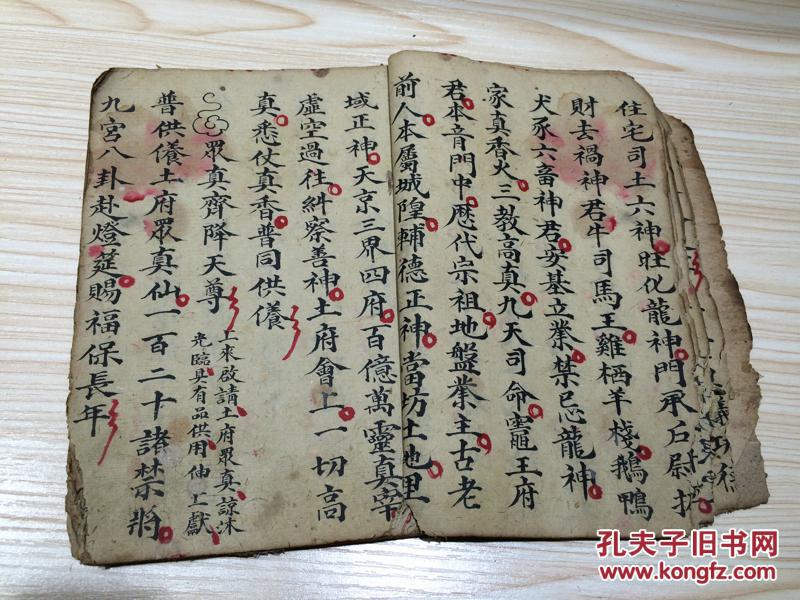 住宅司土六神旺化龍神門承戶尉扌
財去禍神君牛司馬王雞栖羊棧鵝鴨
犬豕六畜神君安基立業禁忌龍神
家真香火三教高真九天司命竈王府
君本音門中歷代宗祖地盤業主古老
前人本屬城隍輔德正神當坊土地里
域正神天京三界四府百億萬靈真宰
虛空過往糾察善神土府會上一切高
真悉仗真香普同供儀
眾真齊降天尊
上來啟請土府眾真諒沐
光臨具有品供用伸上獻
普供儀土府眾真仙一百二十諸禁將
九宮八卦赴燈筵賜福保長年
孔夫子旧书网
www.kongfz.com